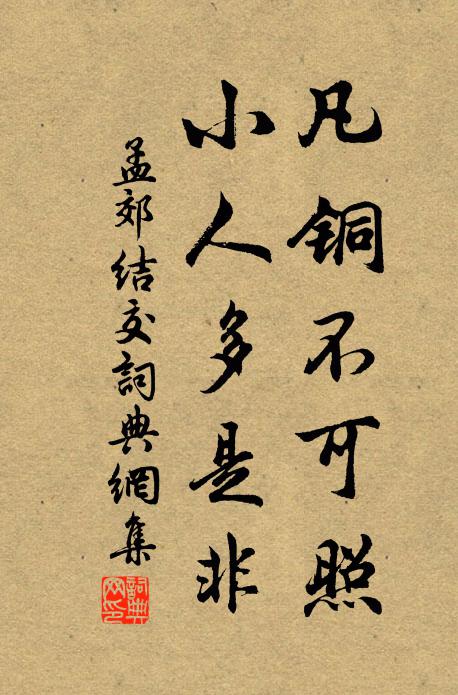 凡铜不可照
小人多是非
孟郊结交詞典網集
詞典网印